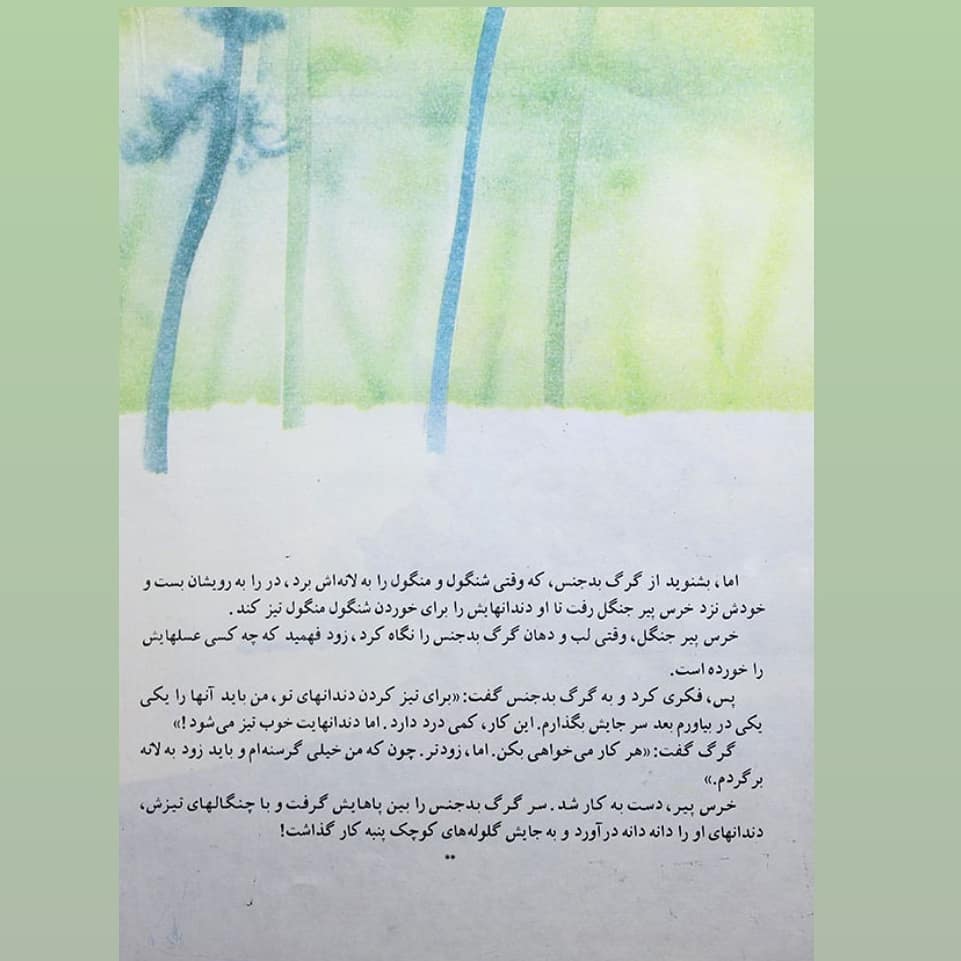 اما، بشنوید از گرگ بدجنس، که وقتی شنگول و منگول را به لانه‌اش برد، در را به رویشان بست و
خودش نزد خرس پیر جنگل رفت تا او دندانهایش را برای خوردن شنگول منگول تیز کند.
خرس پیر جنگل، وقتی لب و دهان گرگ بدجنس را نگاه کرد، زود فهمید که چه کسی عسلهایش
را خورده است.
پس، فکری کرد و به گرگ بدجنس گفت: «برای تیز کردن دندانهای تو، من باید آنها را یکی
یکی در بیاورم بعد سر جایش بگذارم. این کار، کمی درد دارد. اما دندانهایت خوب تیز می‌شود!»
گرگ گفت: «هر کار می‌خواهی بکن. اما، زودتر. چون که من خیلی گرسنه‌ام و باید زود به لانه
برگردم.»
خرس پیر، دست به کار شد. سر گرگ بدجنس را بین پاهایش گرفت و با چنگالهای تیزش،
دندانهای او را دانه دانه درآورد و به جایش گلوله‌های کوچک پنبه کار گذاشت!
**